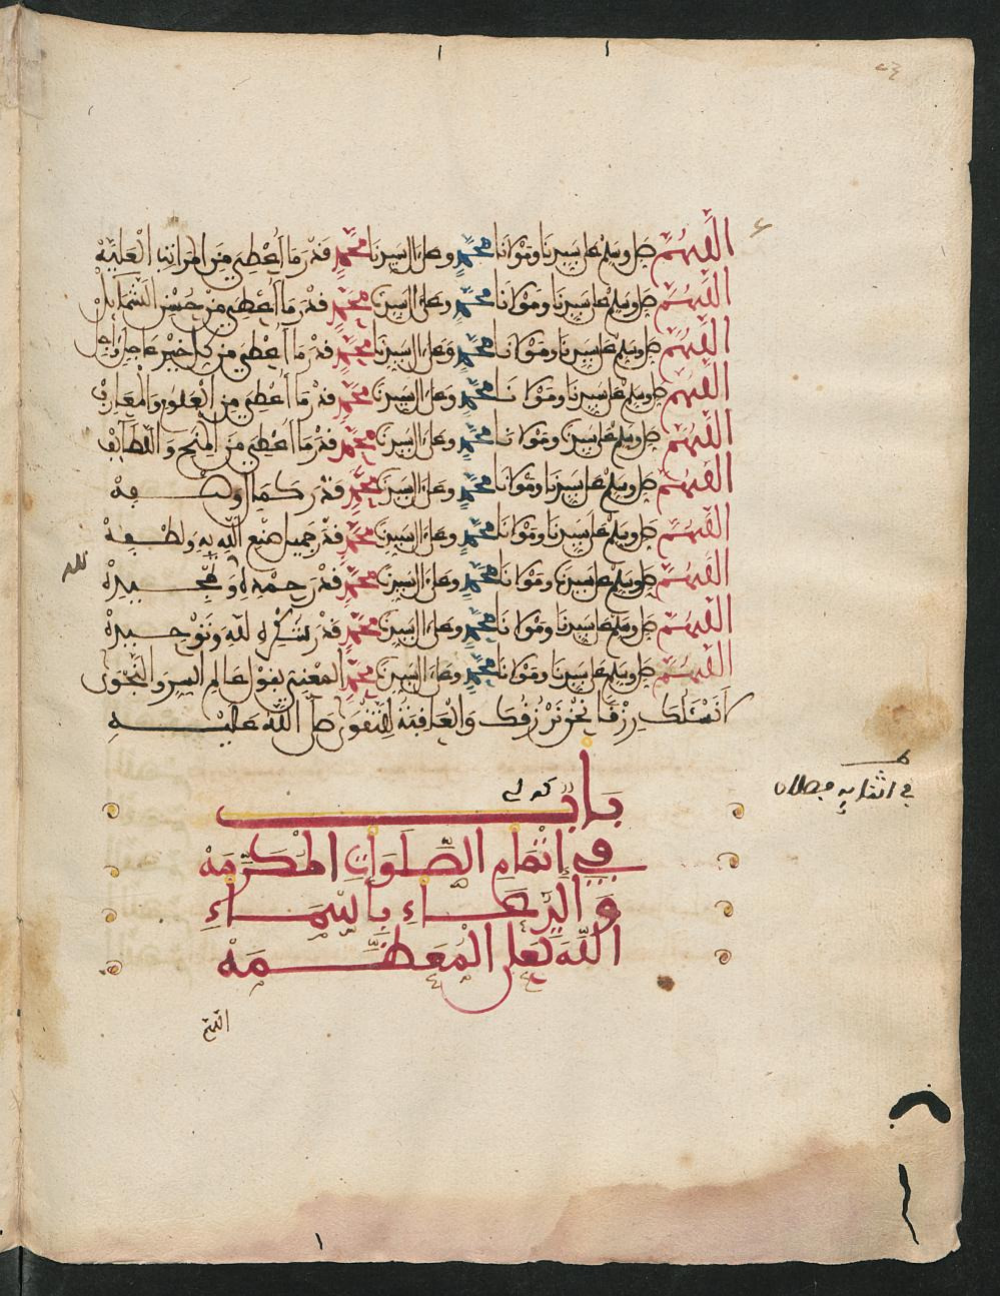 اللهم صل وسلم على سيدنا ومولانا محمد وعلى ال سيدنا محمد قدر ما أعطي من المراتب العلية
اللهم صل وسلم على سيدنا ومولانا محمد وعلى ال سيدنا محمد قدر ما أعطي من حسن الشمائل
اللهم صل وسلم على سيدنا ومولانا محمد وعلى ال سيدنا محمد قدر ما أعطي من كل خير عاجل
اللهم صل وسلم على سيدنا ومولانا محمد وعلى ال سيدنا محمد قدر ما أعطي من العلوم والمعارف
اللهم صل وسلم على سيدنا ومولانا محمد وعلى ال سيدنا محمد قدر ما أعطي من المنح واللطائف
اللهم صل وسلم على سيدنا ومولانا محمد وعلى ال سيدنا محمد قدر كمال وصفه
اللهم صل وسلم على سيدنا ومولانا محمد وعلى ال سيدنا محمد قدر جميل صنع الله به ولطفه
اللهم صل وسلم على سيدنا ومولانا محمد وعلى ال سيدنا محمد قدر حمده وتمجيده
لله
اللهم صل وسلم على سيدنا ومولانا محمد وعلى ال سيدنا محمد قدر شكره لله وتوحيده
اللهم صل وسلم على سيدنا ومولانا محمد وعلى ال سيدنا محمد المعني بقول عالم السر والنجوى
لا نسئلك رزقا نحن نرزقك والعاقبة للتقوى صلى الله عليه
باب
في إتمام الصلوات المكرمه
والدعاء بأسماء
الله تعلى المعظمه